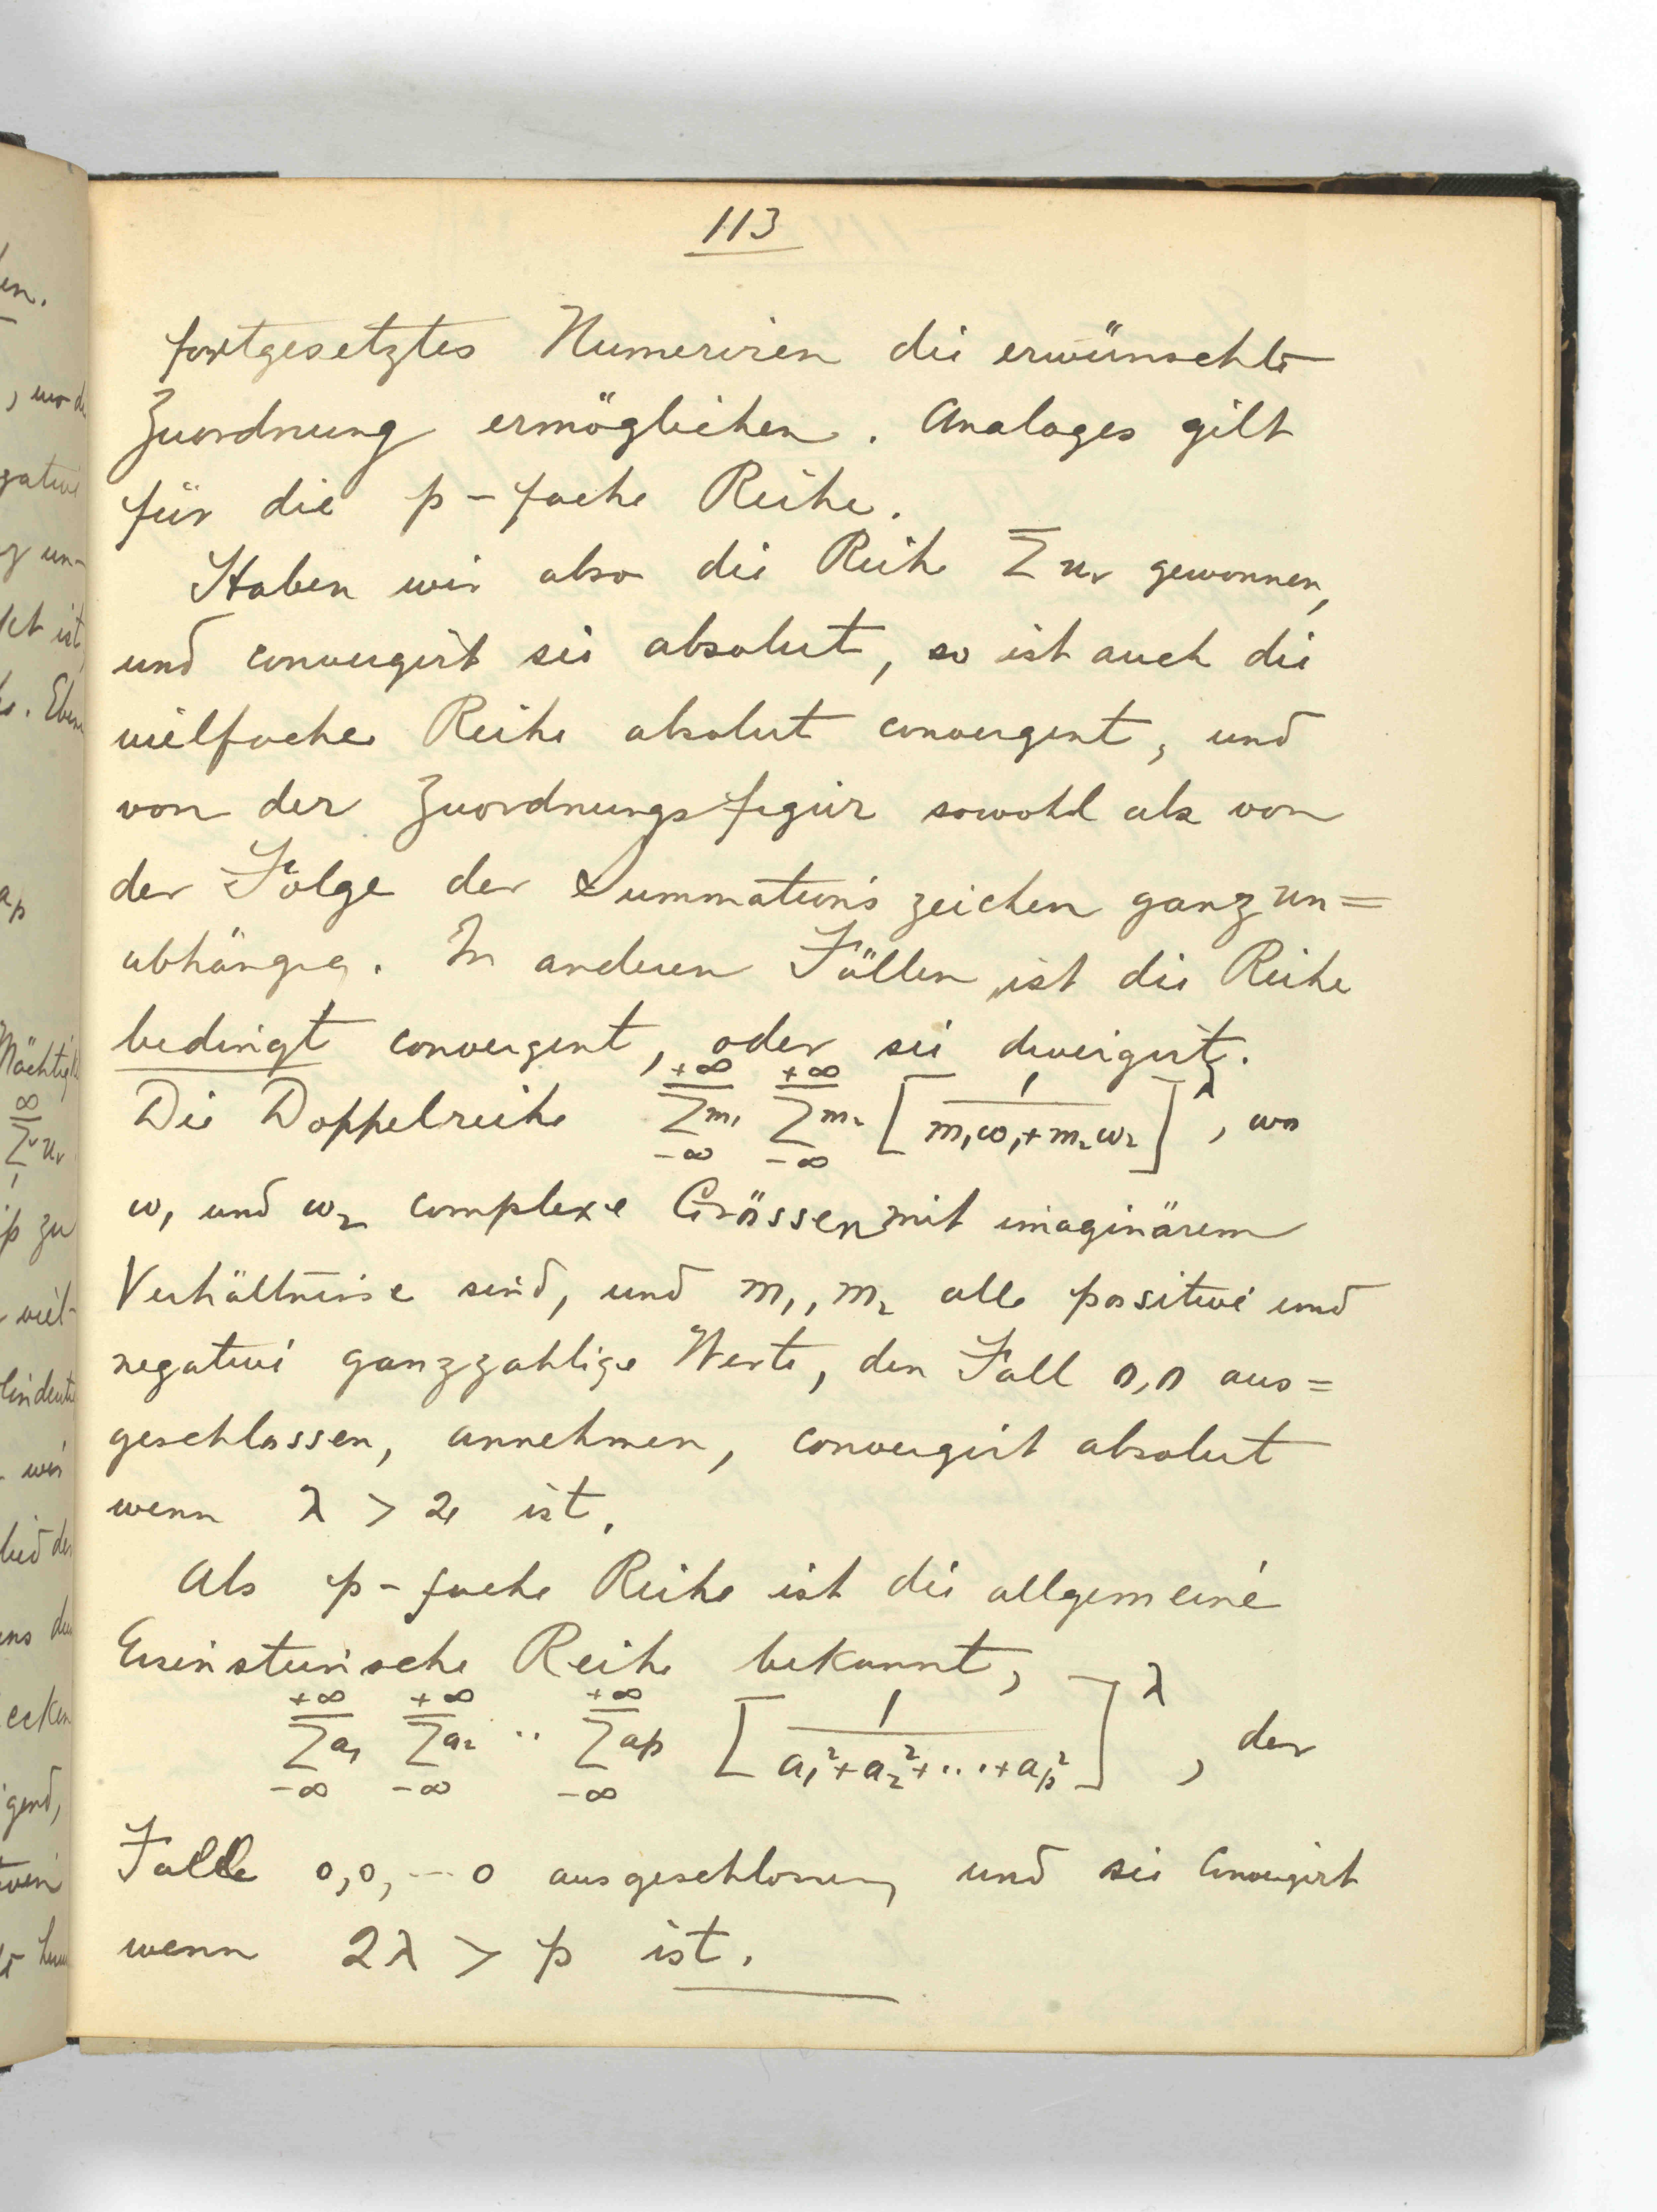 113
fortgesetztes Numeriren die erwünschte
Zuordnung ermöglichen. Analoges gilt
für die p-fache Reihe.
Haben wir also die Reihe Σ uᵥ gewonnen,
und convergirt sie absolut, so ist auch die
vielfache Reihe absolut convergent, und
von der Zuordnungsfigur sowohl als von
der Folge der Summationszeichen ganz un=
abhängig. In anderen Fällen ist die Reihe
bedingt convergent, oder sie divergirt.
Die Doppelreihe \sum_{-∞}^{+∞}{m₁} \sum_{-∞}^{+∞}{m₂} [1/(m₁ω₁+m₂ω₂)]^λ, wo
ω₁ und ω₂ complexe Grössen mit imaginärem
Verhältnisse sind, und m₁, m₂ alle positive und
negative ganzzahlige Werte, den Fall 0,0 aus=
geschlossen, annehmen, convergirt absolut
wenn λ > 2 ist.
Als p-fache Reihe ist die allgemeine
Eisensteinsche Reihe bekannt,
\sum_{-∞}^{+∞}{a₁} \sum_{-∞}^{+∞}{a₂} ·· \sum_{-∞}^{+∞}{a_p} [1/(a₁²+a₂²+···+a_p²)]^λ, der
Falle 0,0,--- 0 ausgeschlossen, und sie convergirt
wenn 2λ > p ist.
en.
, wo d
gative
g un-
kt ist,
Eben
a_p
Mächtigk
∞
Σᵛ uᵥ
1
p zu
viel-
wir
lied der
ecken
gend,